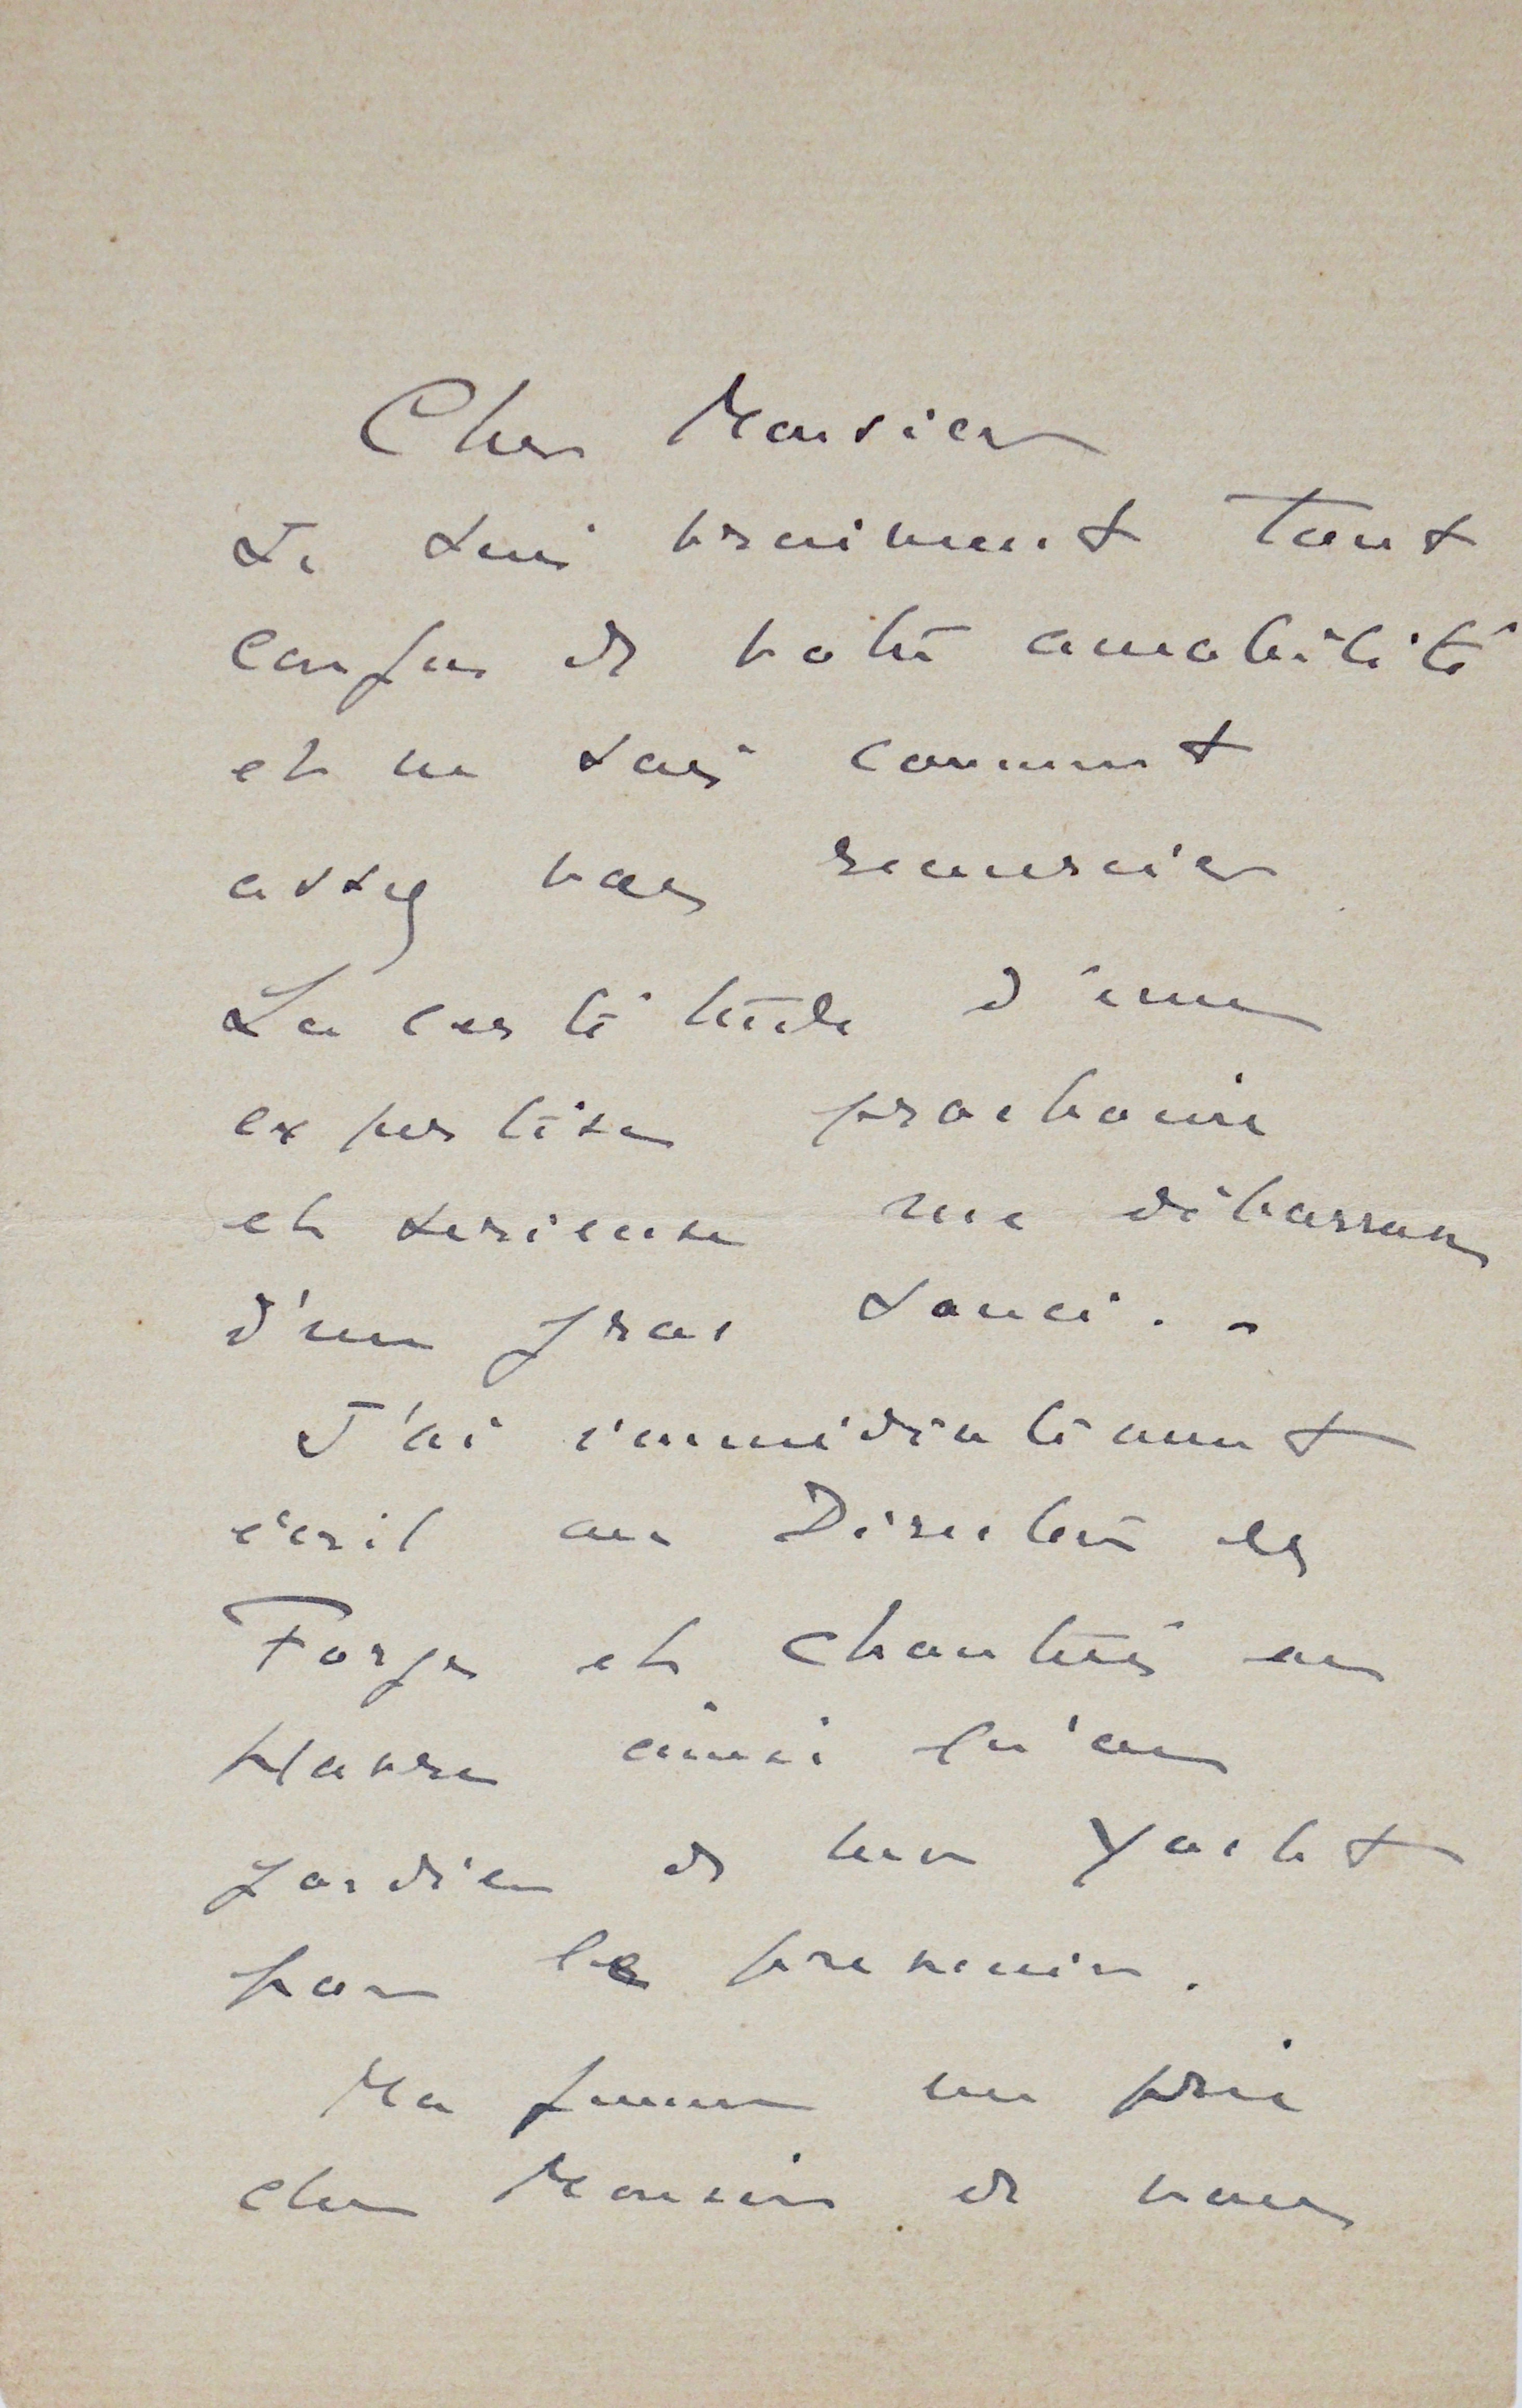 Cher Monsieur
Je suis vraiment tout
confus de votre amabilité
et ne sais comment
assez vous remercier
La certitude d'une
expertise prochaine
et serieuse me débarrasse
d'un gros souci. -
J'ai immédiatement
écrit au Directeur des
Forges et Chantiers au
Havre ainsi qu'au
gardien de mon Yacht
pour les prevenir.
Ma femme me prie
cher Monsieur de vous